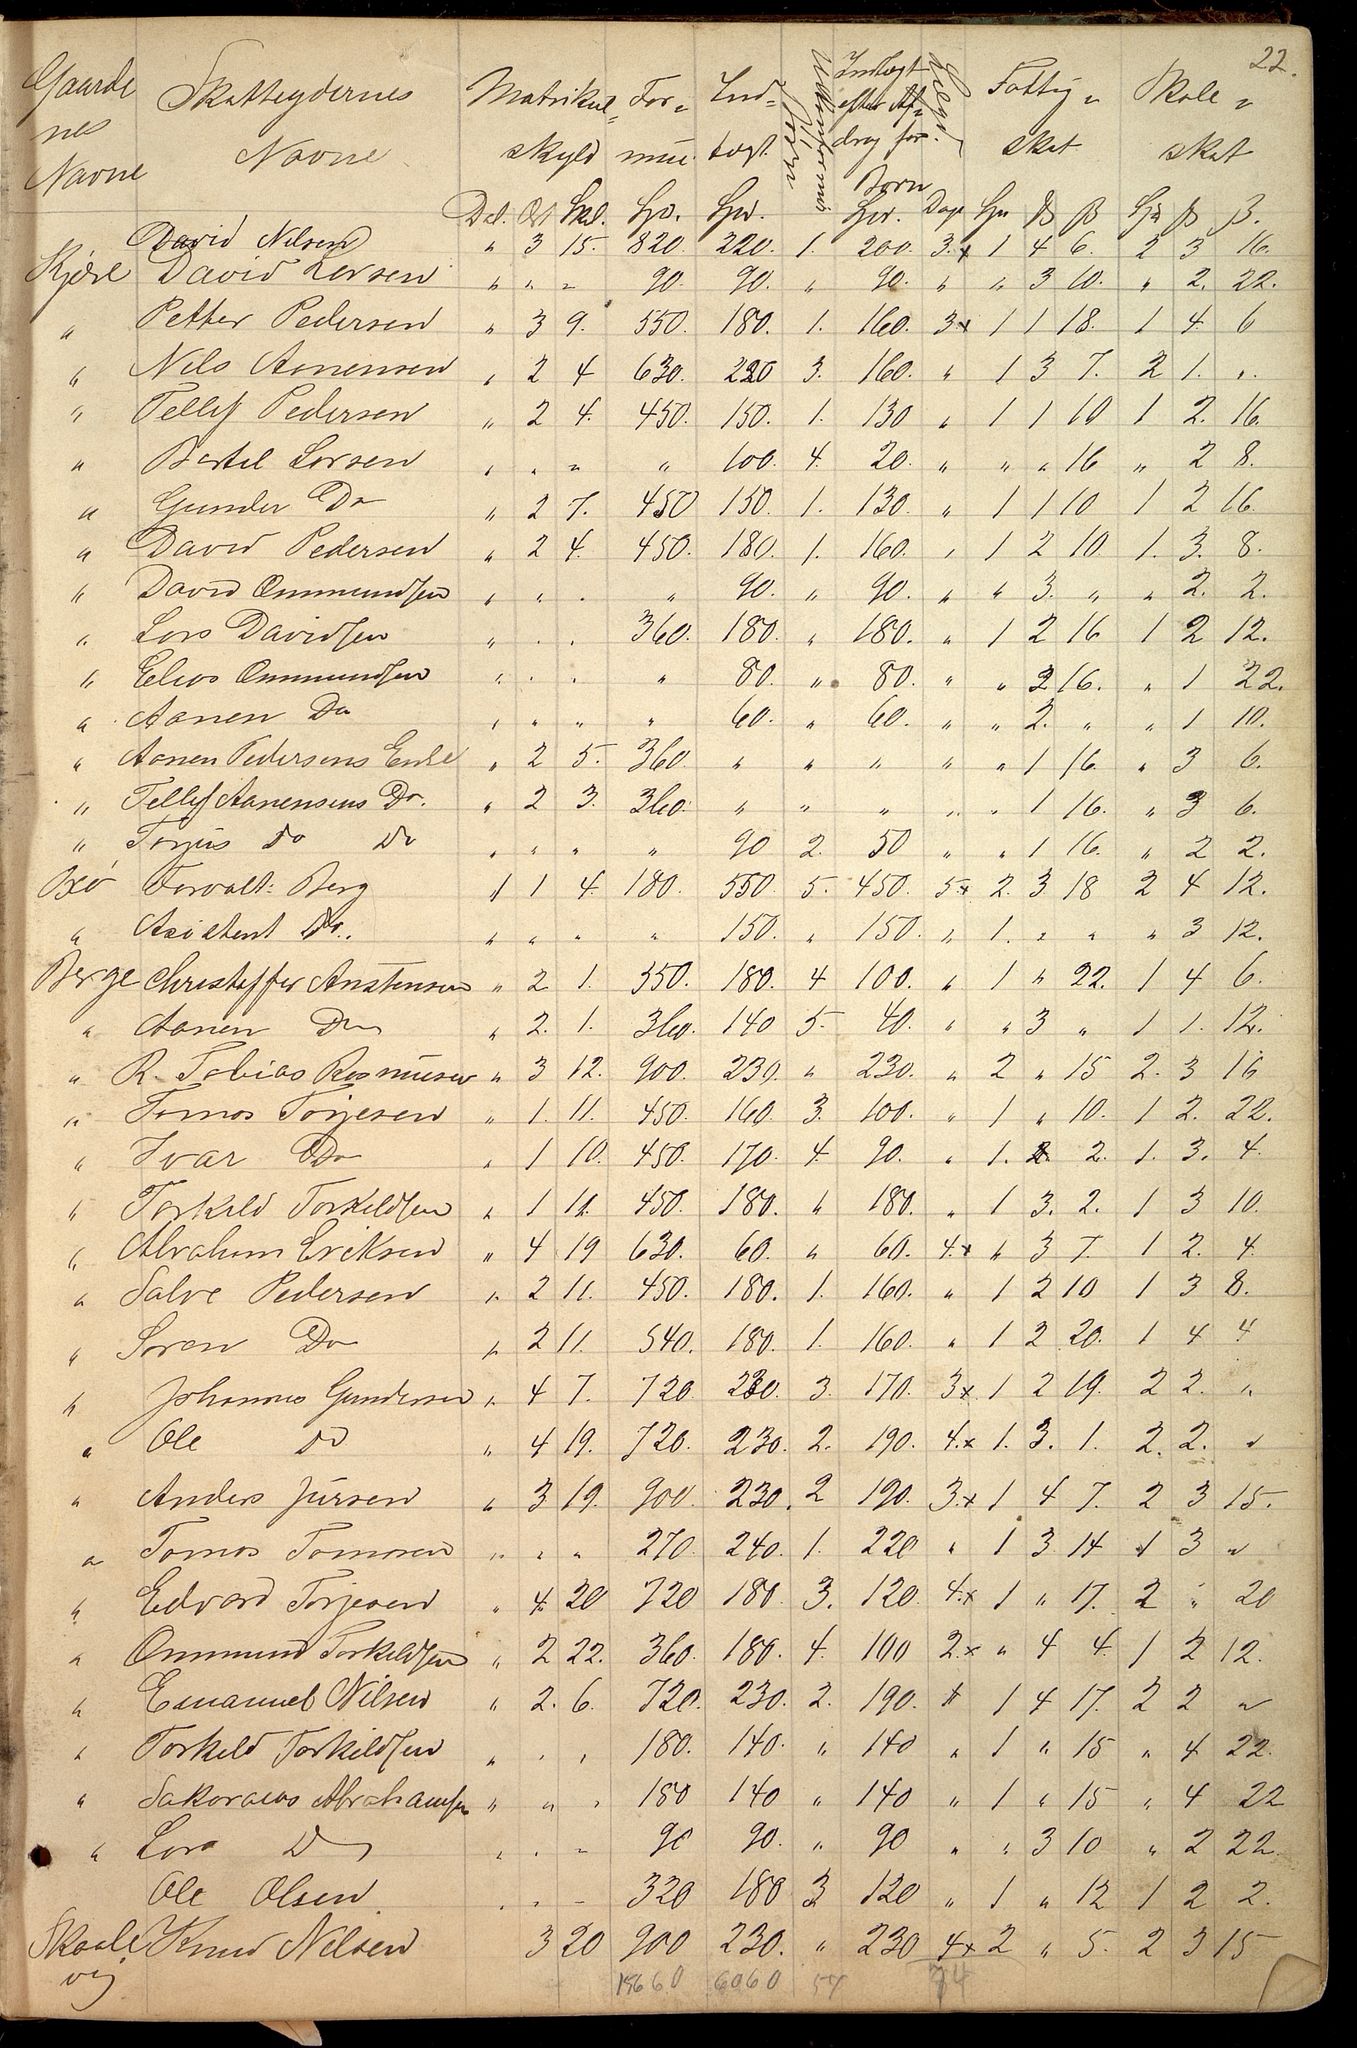 22.
Gaarde Skatteydernes Matrikul= For= Ind= Indtægt Fattig= Skole=
nes Navne skyld mue. tægt. efter Af= skat skat
Navne drag for
Børn
Dal. Ort Skl. Dage
David Nilsen " 3 15. 820. 220. 1. 200. 3.x 1 4 6. 2 3 16.
Kjære David Larsen " " " 90. 90. " 90. " " 3 10. " 2. 22.
" Petter Pedersen " 3 9. 550. 180. 1. 160. 3.x 1 1 18. 1 4 6
" Nils Aanensen " 2 4 630. 220 3. 160. " 1 3 7. 2 1. "
" Tellef Pedersen " 2 4. 450. 150. 1. 130 " 1 1 10 1 2. 16.
" Bertel Larsen " " " " 100. 4. 20. " " " 16 " 2 8.
" Gunder Do " 2 7. 450 150. 1. 130. " 1 1 10 1 2 16.
" David Pedersen " 2 4. 450. 180. 1. 160. " 1 2 10. 1. 3. 8.
" David Ommundsen " " " " 90. " 90. " " 3. " " 2. 2.
" Lars Davidsen " " " 360. 180. " 180. " 1 2 16 1 2 12.
" Elias Ommundsen " " " " 80. " 80. " " 2 16. " 1 22.
" Aanen Do " " " " 60. " 60. " " 2. " " 1 10.
" Aanen Pedersens Enke " 2 5. 360 " " " " " 1 16. " 3 6.
" Tellef Aanensens Do. " 2 3. 360. " " " " " 1 16. " 3 6.
" Torjus Do Do " " " " 90 2. 50 " " 1 16. " 2 2.
Bøe Forvalt: Berg " 1 4. 180. 550. 5. 450. 5.x 2. 3 18 2 4 12.
" Asistent Do. " " " " 150. " 150. " 1. " " " 3 12.
Berge Christoffer Anstensen " 2 1. 550. 180. 4 100. " 1 " 22. 1 4 6.
" Aanen Do " 2. 1. 360. 140 5. 40. " " 3 " 1 1. 12.
" R. Tobias Rasmusen " 3 12. 900. 230. " 230. " 2 " 15 2. 3 16
" Tomas Torjesen " 1. 11. 450. 160. 3. 100. " 1 " 10. 1 2. 22.
" Ivar Do " 1 10. 450. 170. 4. 90. " 1. 2. 1. 3. 4.
" Torkild Torkildsen " 1 11. 450. 180. " 180. " 1 3. 2. 1 3 10.
" Abraham Eriksen " 4 19 630. 60. " 60. 4.x " 3 7. 1 2. 4.
" Salve Pedersen " 2 11. 450. 180. 1. 160. " 1 2 10 1 3 8.
" Søren Do " 2 11. 540. 180. 1. 160. " 1 2 20. 1 4 4
" Johannes Gundersen " 4 7. 720. 230. 3. 170. 3x 1 2 19. 2 2. "
" Ole Do " 4 19. 720. 230. 2. 190. 4.x 1. 3. 1. 2. 2. "
" Anders Jursen " 3 19. 900. 230. 2 190. 3.x 1 4 7. 2 3 15.
" Tomas Tomasen " " " 270. 240. 1. 220 " 1 3 14 1 3 "
" Edvard Torjesen " 4. 20 720 180. 3. 120. 4.x 1 " 17. 2 " 20
" Ommund Torkildsen " 2 22. 360. 180. 4. 100 2.x " 4 4. 1 2 12.
" Emanuel Nilsen " 2. 6. 720. 230. 2. 190. 1 4 17. 2 2 "
" Torkild Torkildsen " " " 180. 140. " 140 " 1 " 15 " 4 22.
" Sakarias Abrahamsen " " " 180 140 " 140 " 1 " 15 " 4 22
" Lars Do " " " 90 90. " 90 " " 3 10 " 2 22.
Ole Olsen " " 320 180 3 120 " 1 " 12 1 2 2.
Skaale Knud Nilsen 3 20 900 230. " 230 4x 2 " 5. 2 3 15
vig 6060 54 74